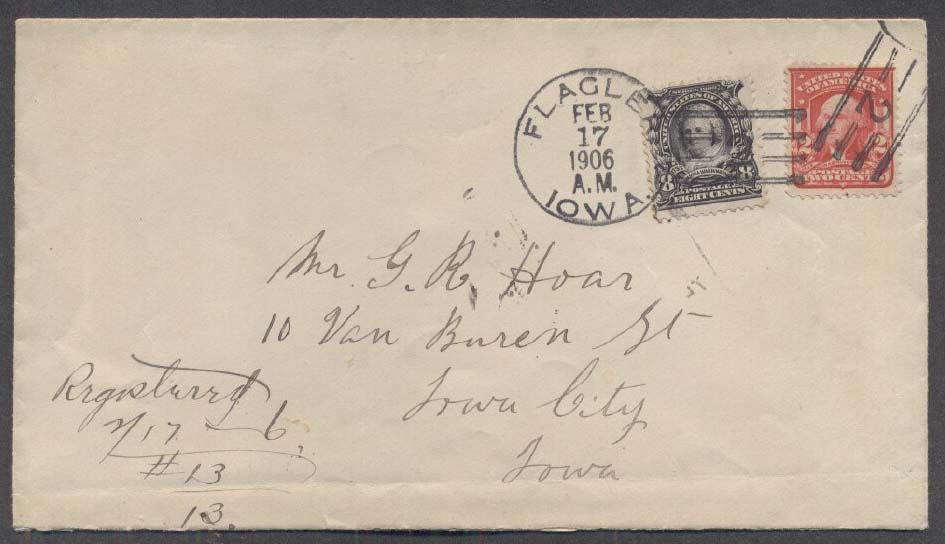 FLAGLER
FEB
17
1906
A.M.
IOWA.
SERIES 1902
UNITED STATES OF AMERICA
8 8
POSTAGE
EIGHT CENTS
1
UNITED STATES
OF AMERICA
2 2
POSTAGE
TWO CENTS
2
Mr. G. R. Hoar
10 Van Buren St
Iowa City
Iowa
Registered
2/17 - 6.
# 13
13.